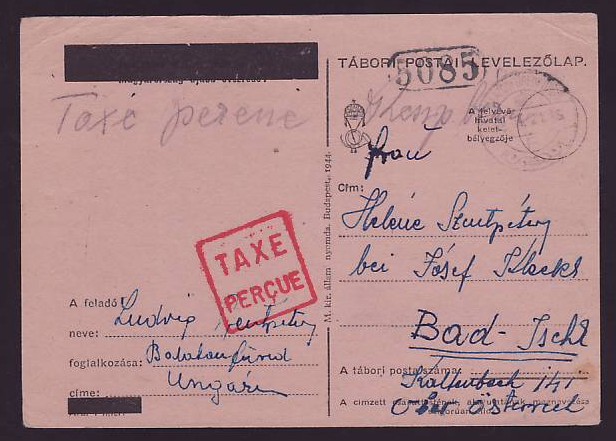 TÁBORI POSTAI LEVELEZŐLAP.
5085
Taxé perçue
A felvevő
hivatal
kelet-
bélyegzője
Frau
Cím:
Helene Szentpétery
bei Josef
Bad-Ischl
A tábori postaszáma:
Kaltenbach 141
Ober Österreich
A címzett
M. kir. állam nyomda. Budapest, 1944.
TAXE
PERÇUE
A feladó
neve: Ludwig Szentpétery
foglalkozása: Balatonfüred
címe: Ungarn